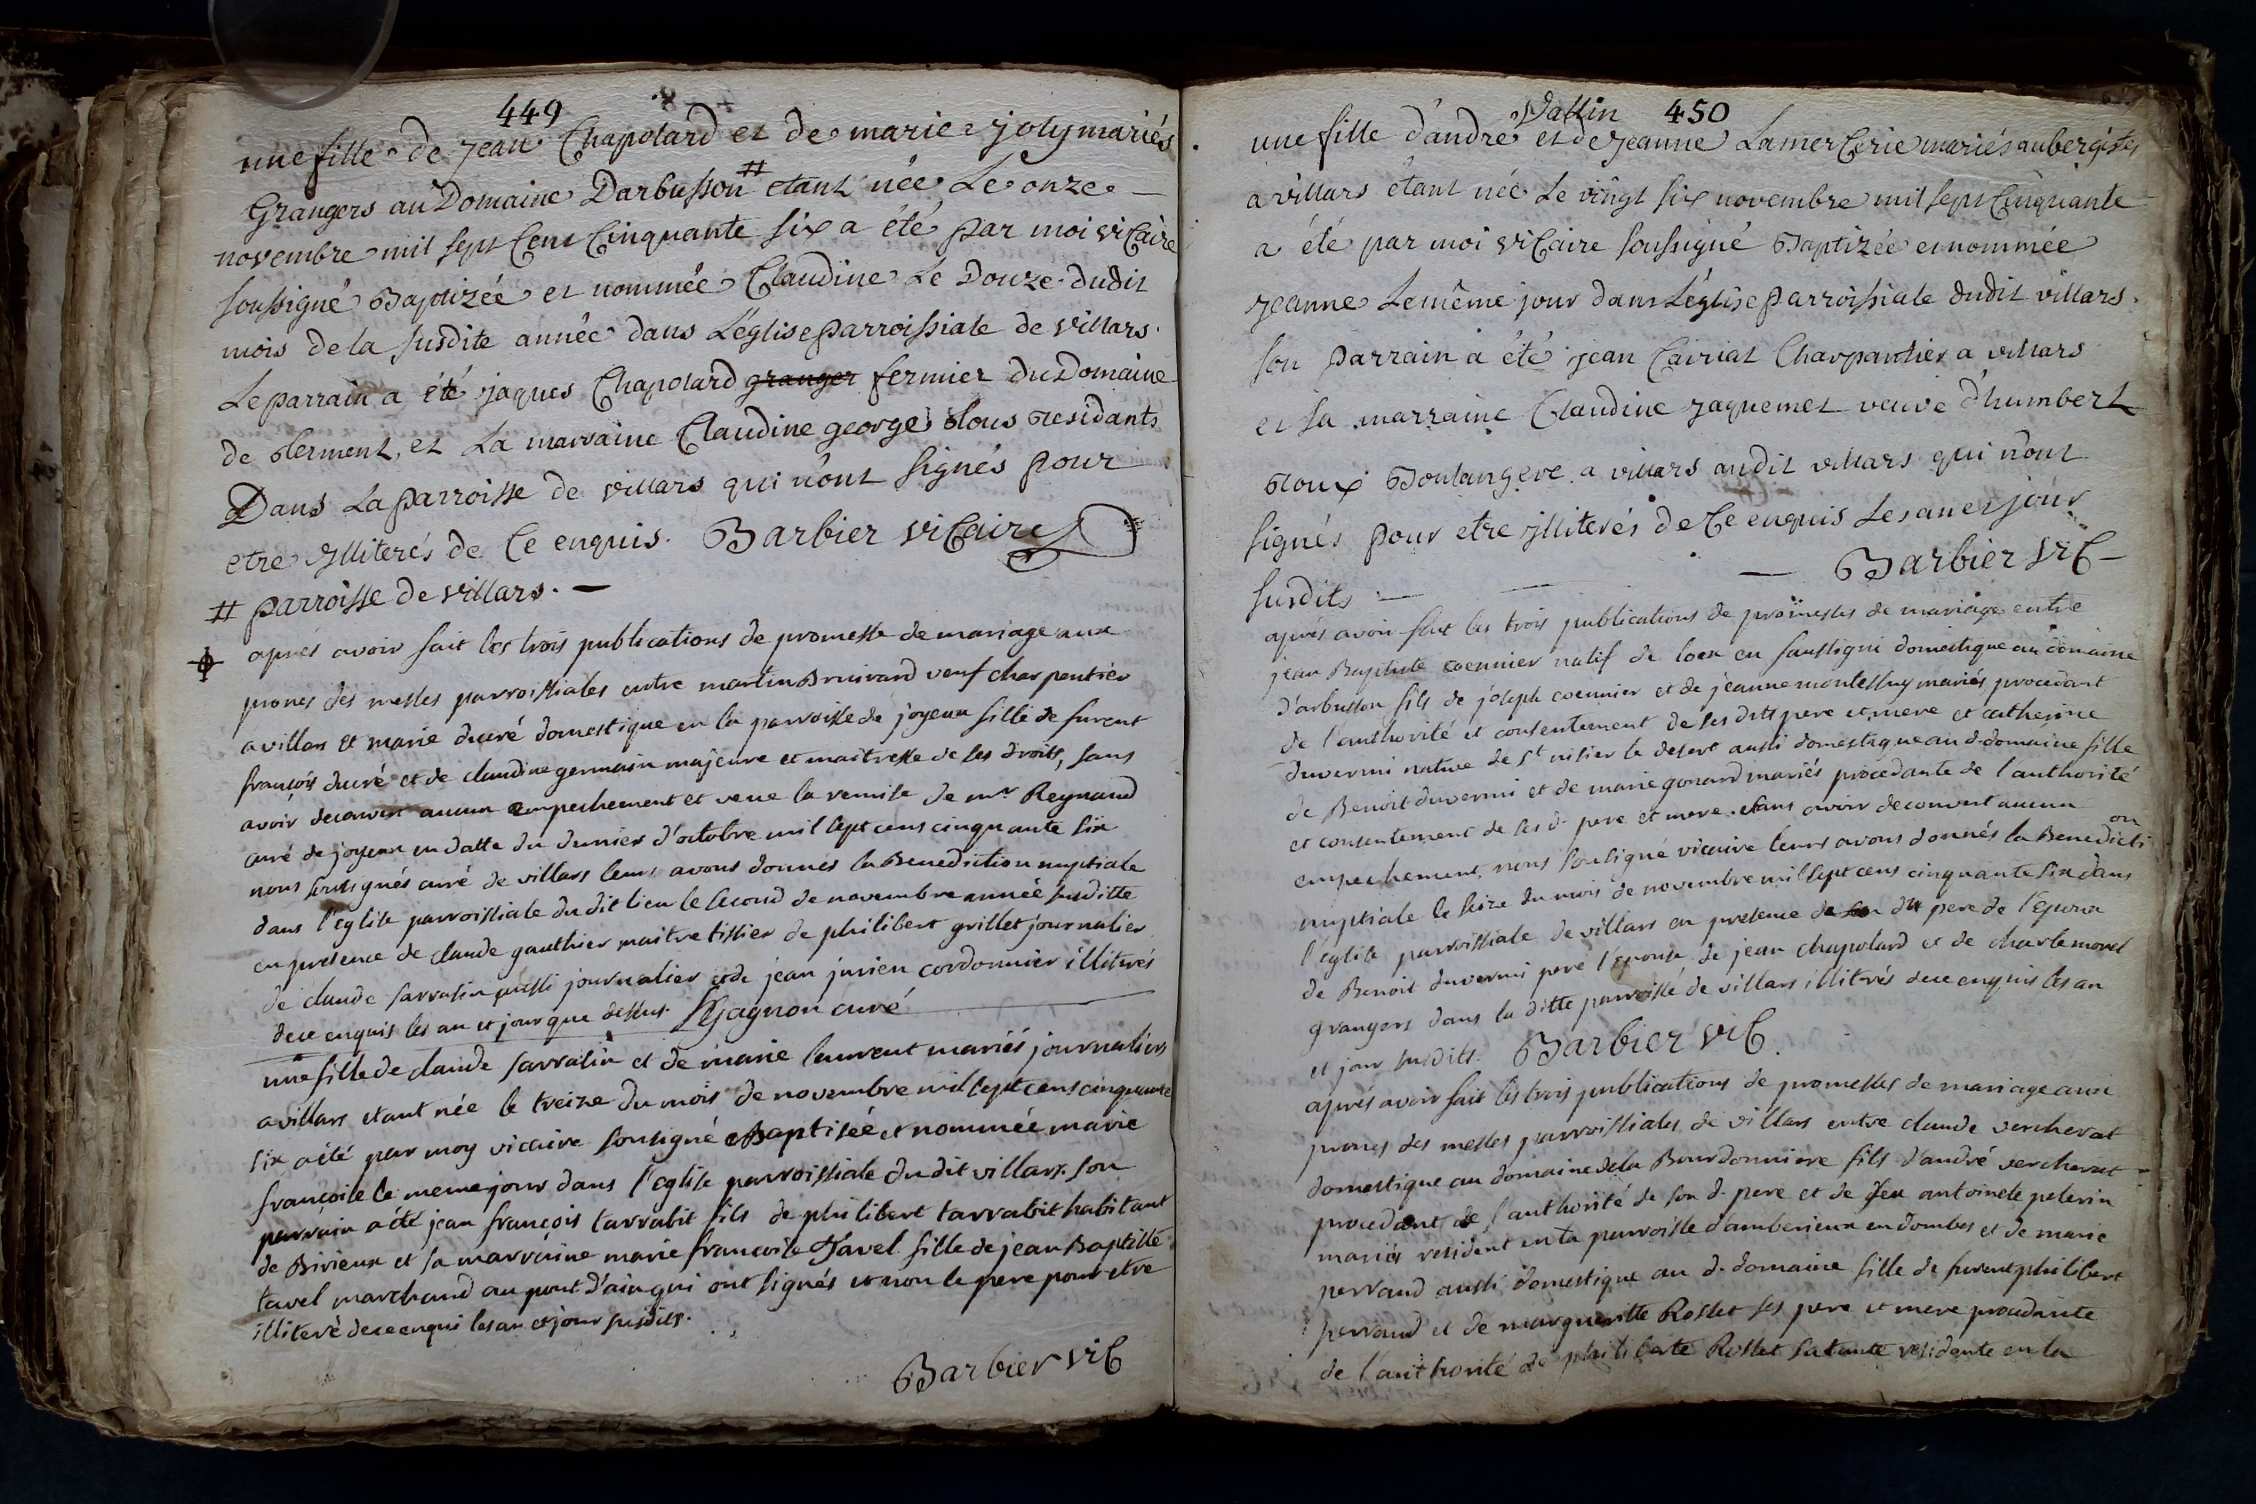 449
une fille de jean Chapolard et de marie joly mariés
Grangers au Domaine Darbusson # etant née Le onze
novembre mil sept Cent Cinquante six a été par moi viCaire
soussigné Baptizée et nommée Claudine Le Douze dudit
mois de la susdite année dans L'église parroissiale de villars.
Le parrain a été jaques Chapolard granger fermier du Domaine
de clerment, et La marraine Claudine george tous residants
Dans La parroisse de villars qui n'ont signés pour
etre illiterés de Ce enquis. Barbier viCaire
# parroisse de villars.
aprés avoir fait les trois publications de promesse de mariage aux
prones des messes parroissiales entre martin Bruirard veuf charpentier
a villars et marie ducré domestique en la parroisse de joyeux fille de furent
françois ducré et de claudine germain majeure et maitresse de ses droits, sans
avoir decouvert aucun empechement et veue la remise de mr Reynaud
curé de joyeux en datte du dernier d'octobre mil sept cens cinquante six
nous soussignés curé de villars leurs avons donnés la Benediction nuptiale
dans l'eglise parroissiale du dit lieu le second de novembre année susditte
en presence de claude gauthier maitre tissier de philibert grillet journalier
de claude sarrasin aussi journalier et de jean jurien cordonnier illiterés
de ce enquis les an et jour que dessus Gagnon curé
une fille de claude sarrasin et de marie laurent mariés journaliers
a villars etant née le treize du mois de novembre mil sept cens cinquante
six a été par moy vicaire sousigné Baptisée et nommée marie
françoise le meme jour dans l'eglise parroissiale du dit villars. son
parrain a été jean françois tarrabit fils de philibert tarrabit habitant
de Birieux et sa marraine marie françoise tavel fille de jean Baptiste
tavel marchand au pont d'ain qui ont signés et non le pere pour etre
illiteré de ce enqui les an et jour susdits.
Barbier viC
Vallin 450
une fille d'andré et de jeanne LamerCerie mariés aubergistes
a villars étant née Le vingt six novembre mil sept Cinquante
a été par moi viCaire soussigné Baptizée et nommée
jeanne Le même jour dans L'église parroissiale dudit villars.
son parrain a été jean Cairiat Charpantier a villars
et sa marraine Claudine jaquemet veuve d'humbert
Boulangere a villars audit villars qui n'ont
signés pour etre illiterés de Ce enquis Les an et jour
susdits. Barbier viC
aprés avoir fait les trois publications de promesses de mariage entre
jean Baptiste coennier natif de loex en faussigni domestique au domaine
d'arbusson fils de joseph coennier et de jeanne montessuy mariés procedant
de l'authorité et consentement de ses dits pere et mere et catherine
duvermi native de st nisier le desert aussi domestique au d. domaine fille
de Benoit duvermi et de marie gonard mariés procedante de l'authorité
et consentement de ses d. pere et mere. sans avoir decouvert aucun
empechement, nous sousigné vicaire leurs avons donnés la Benedicti on
nuptiale le seize du mois de novembre mil sept cens cinquante six dans
l'eglise parroissiale de villars en presence du dit pere de l'epoux
de Benoit duvermi pere l'epouse de jean chapolard et de charle morel
grangers dans la ditte parroisse de villars illiterés de ce enquis les an
et jour susdits. Barbier viC.
aprés avoir fait les trois publications de promesses de mariage aux
prones des messes parroissiales de villars entre claude vercherat
domestique au domaine de la Bourdonniere fils d'andré vercherat
procedant de l'authorité de son d. pere et de feu antoinete pelerin
mariés resident en la parroisse d'amberieux en dombes et de marie
perraud aussi domestique au d. domaine fille de furent philibert
perraud et de margueritte Rosset ses pere et mere procedante
de l'authorité de philiberte Rosset sa tante residente en la